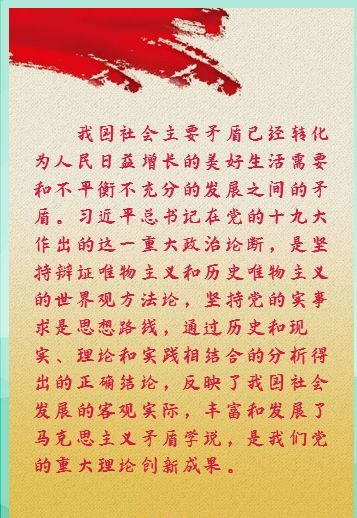 我国社会主要矛盾已经转化
为人民日益增长的美好生活需要
和不平衡不充分的发展之间的矛
盾。习近平总书记在党的十九大
作出的这一重大政治论断，是坚
持辩证唯物主义和历史唯物主义
的世界观方法论，坚持党的实事
求是思想路线，通过历史和现
实、理论和实践相结合的分析得
出的正确结论，反映了我国社会
发展的客观实际，丰富和发展了
马克思主义矛盾学说，是我们党
的重大理论创新成果。